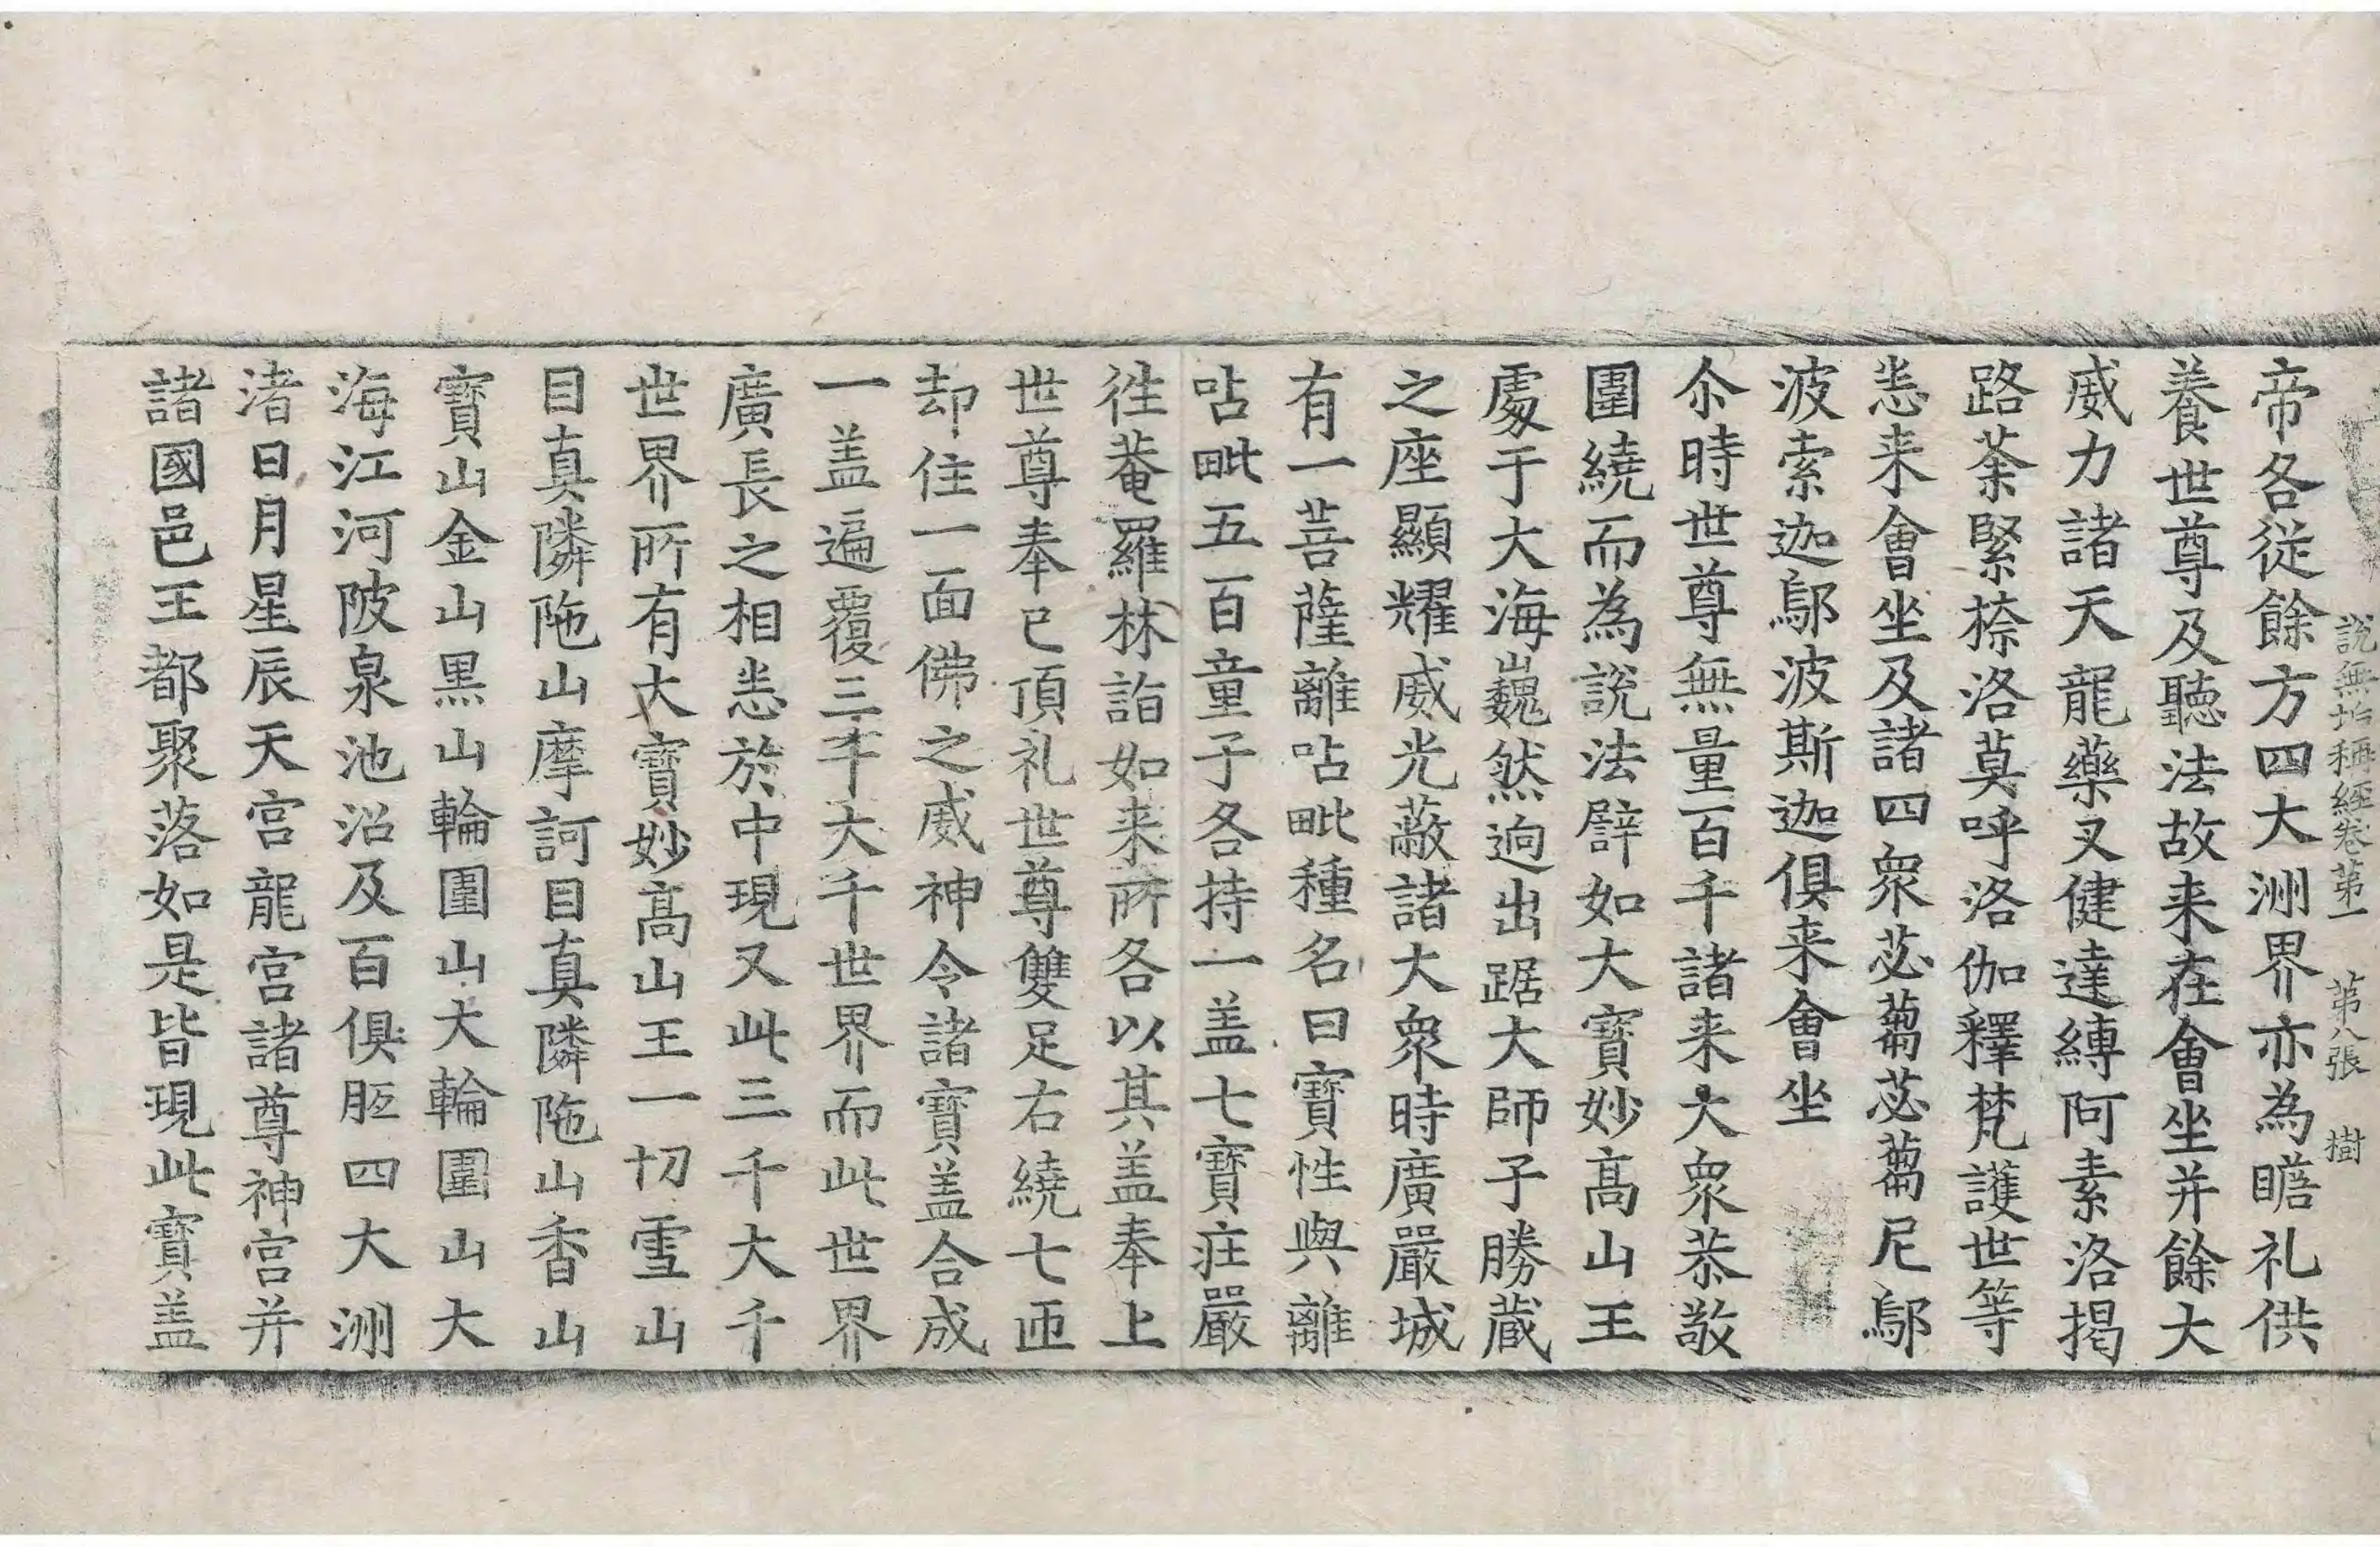 說無垢稱經卷第一 第八張 樹
帝各從餘方四大洲界亦為瞻礼供
養世尊及聽法故来在會坐并餘大
威力諸天龍藥叉健達縛阿素洛揭
路荼緊捺洛莫呼洛伽釋梵護世等
悉来會坐及諸四衆苾蒭苾蒭尼鄔
波索迦鄔波斯迦俱来會坐
尒時世尊無量百千諸来大衆恭敬
圍繞而為說法譬如大寶妙高山王
處于大海巍然逈出踞大師子勝蔵
之座顯耀威光蔽諸大衆時廣嚴城
有一菩薩離呫毗種名曰寶性與離
呫毗五百童子各持一盖七寶莊嚴
徃菴羅林詣如来所各以其盖奉上
世尊奉已頂礼世尊雙足右繞七匝
却住一面佛之威神令諸寶盖合成
一盖遍覆三千大千世界而此世界
廣長之相悉於中現又此三千大千
世界所有大寶妙高山王一切雪山
目真隣陁山摩訶目真隣陁山香山
寶山金山黒山輪圍山大輪圍山大
海江河陂泉池沼及百俱胝四大洲
渚日月星辰天宮龍宮諸尊神宮并
諸國邑王都聚落如是皆現此寶盖